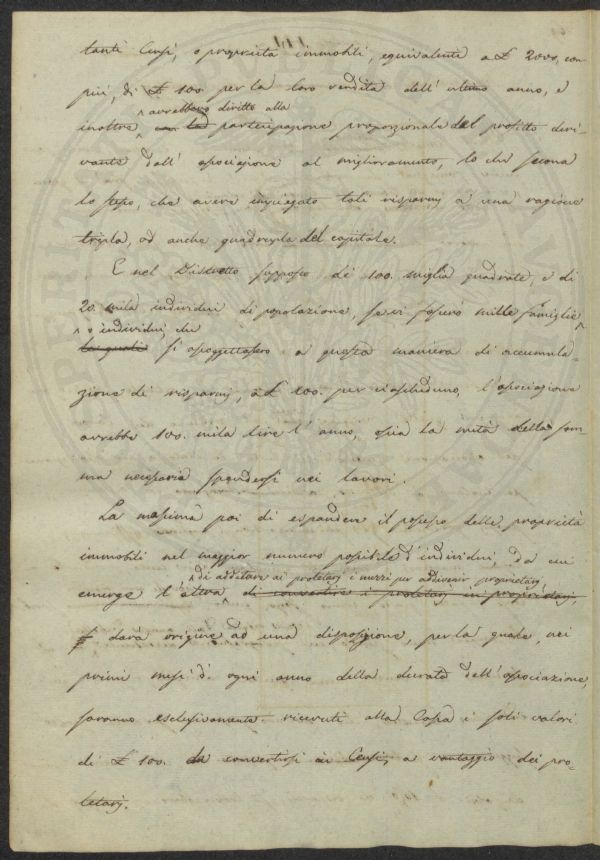 tanti Censi, o proprietà immobili, equivalente a £ 2000, con
più, di £ 100 per la loro rendita dell' ultimo anno, e
avrebbero diritto alla
inoltre partecipazione proporzionale del profitto deri-
vante dall' associazione al miglioramento, lo che suona
lo stesso, che avere impiegato tali risparmj a una ragione
tripla, od anche quadrupla del capitale.
E nel Distretto supposto di 100. miglia quadrate, e di
20. mila individui di popolazione, se vi fossero mille famiglie
o individui, che
le quali si assoggettassero a questa maniera di accumula-
zione di risparmj, a £ 100. per ciascheduno, l'associazione
avrebbe 100. mila lire l' anno, ossia la metà della som-
ma necessaria spendersi nei lavori.
La massima poi di espandere il possesso delle proprietà
immobili nel maggior numero possibile d'individui, da cui
di additare ai proletarj i mezzi per addivenir proprietarj,
emerge l'altra di convertire i proletarj in proprietarj,
darà origine ad una disposizione, per la quale, nei
primi mesi d' ogni anno della durata dell' associazione,
saranno esclusivamente ricevuti alla Cassa i soli valori
di £ 100. da convertirsi in Censi, a vantaggio dei pro-
letarj.